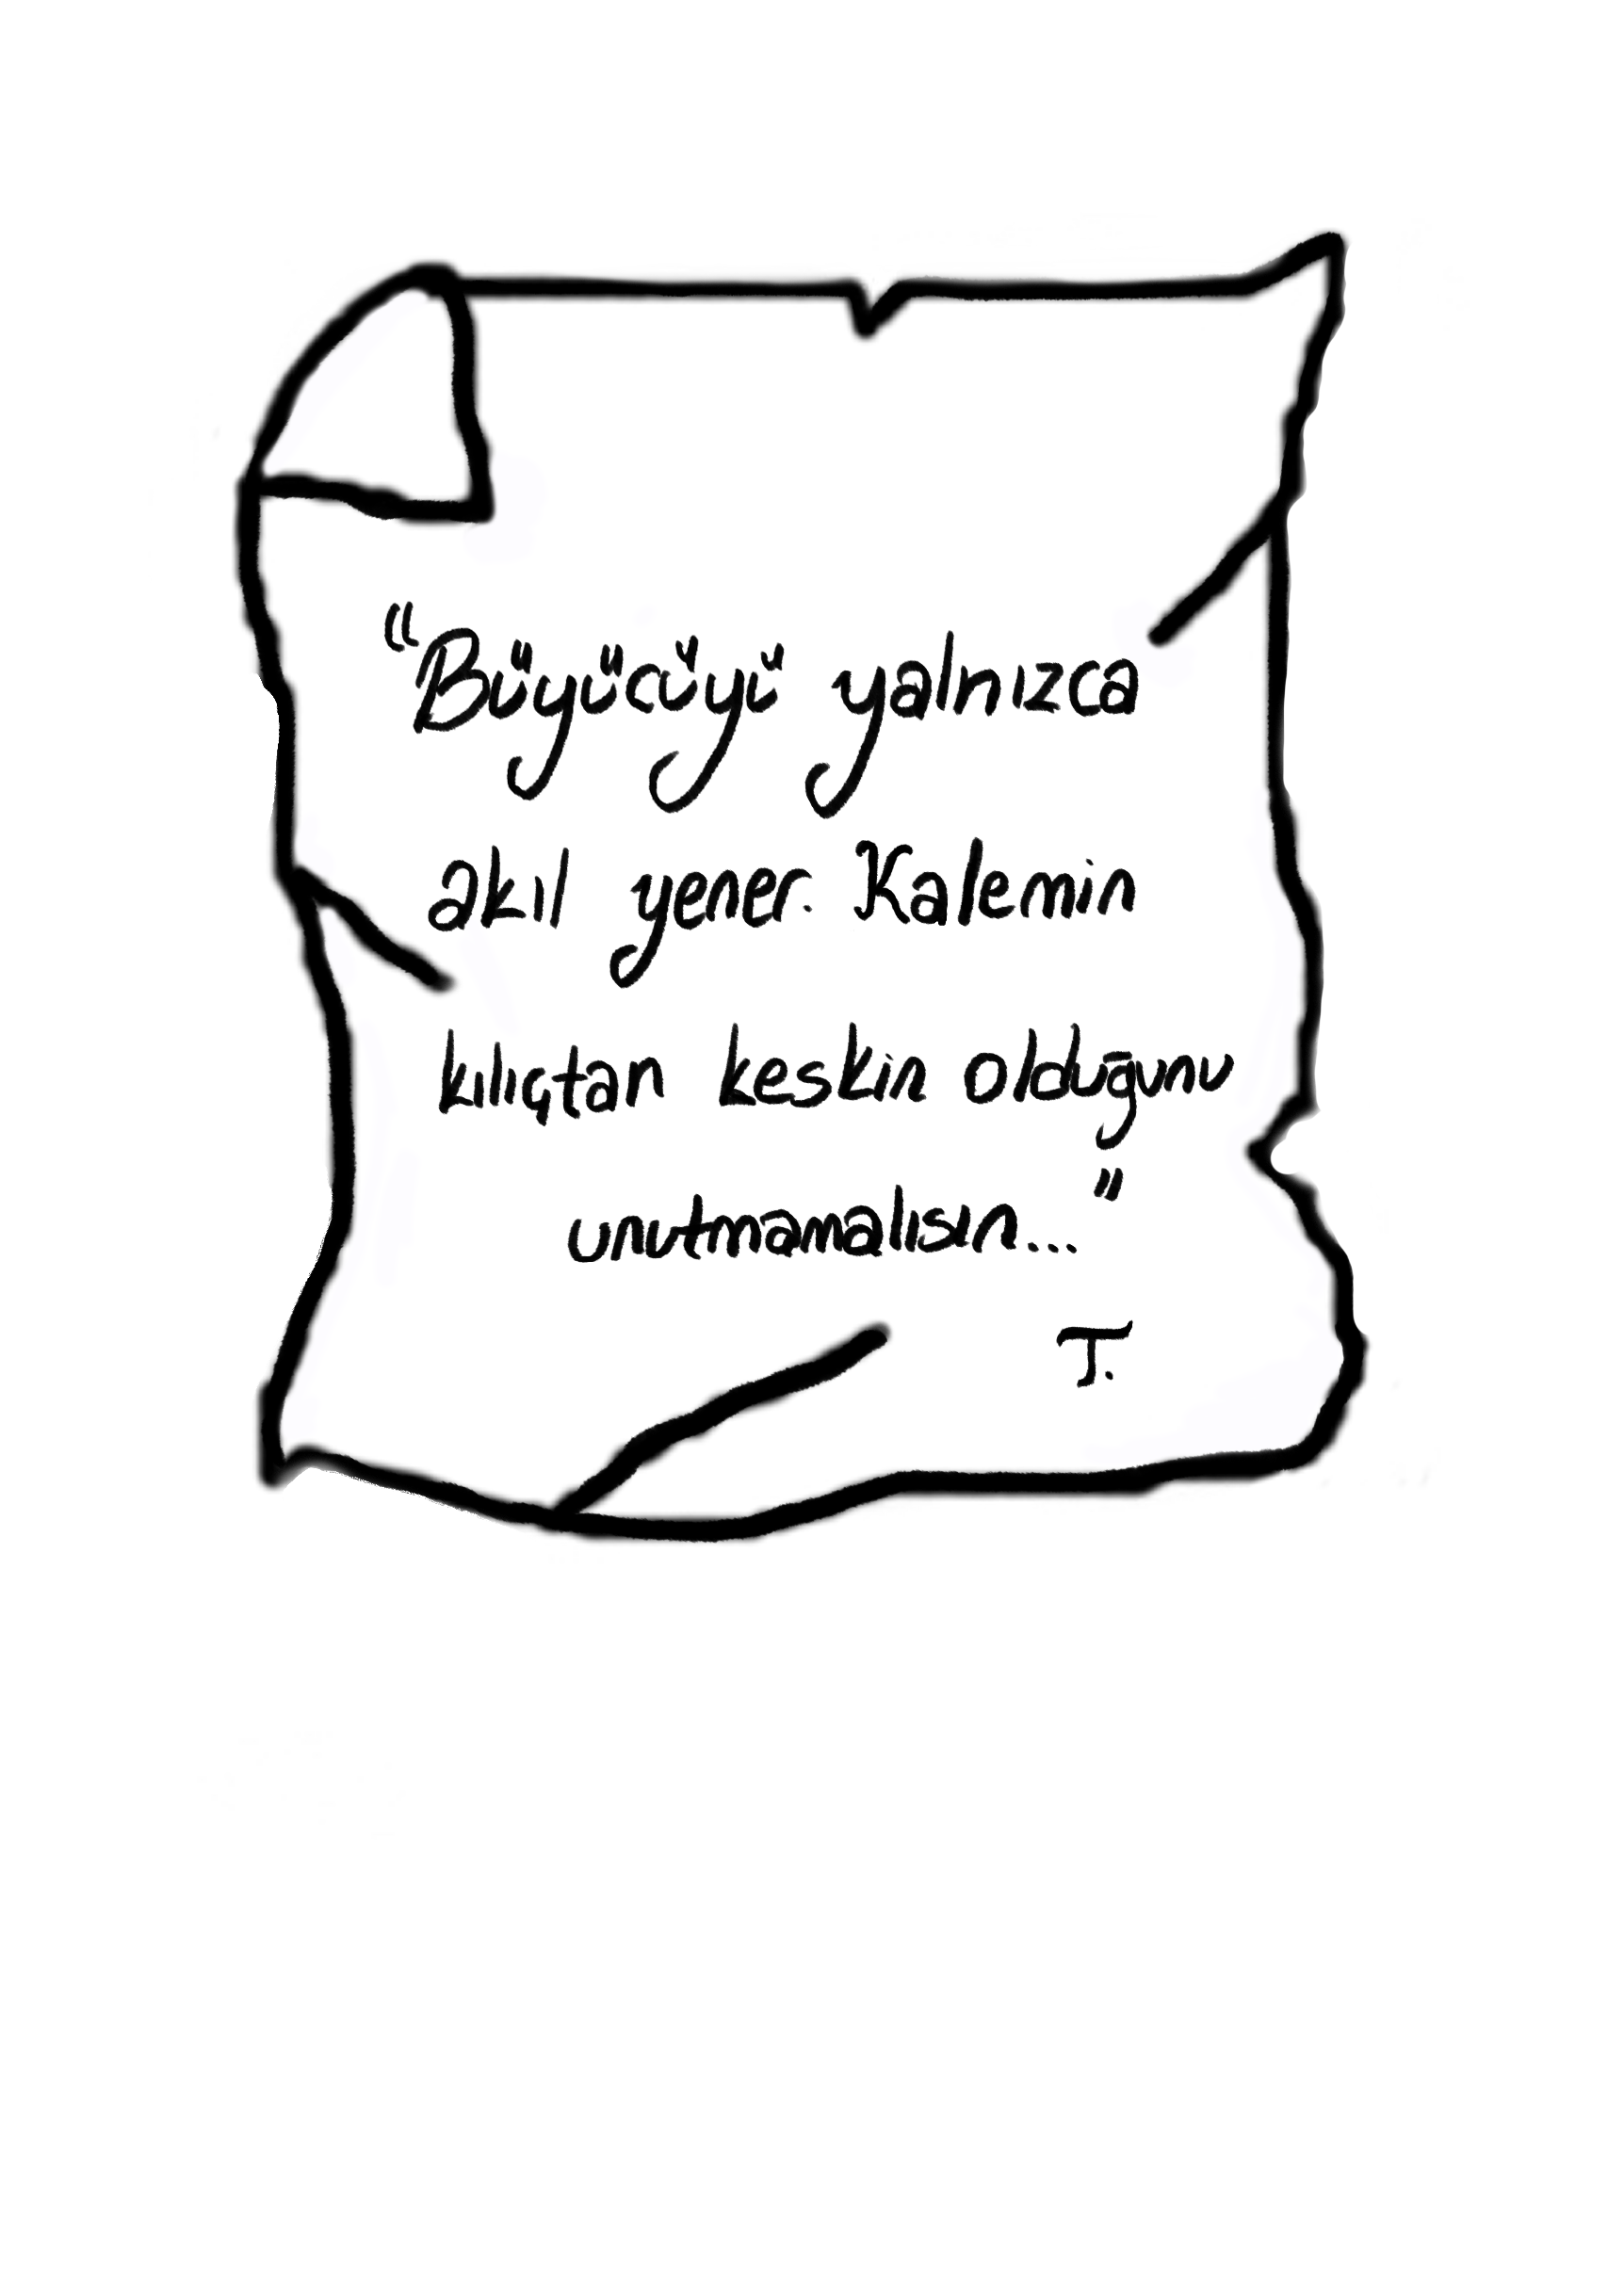 "Büyücüyü yalnızca
akıl yener. Kalemin
kılıçtan keskin olduğunu
unutmamalısın..."
T.